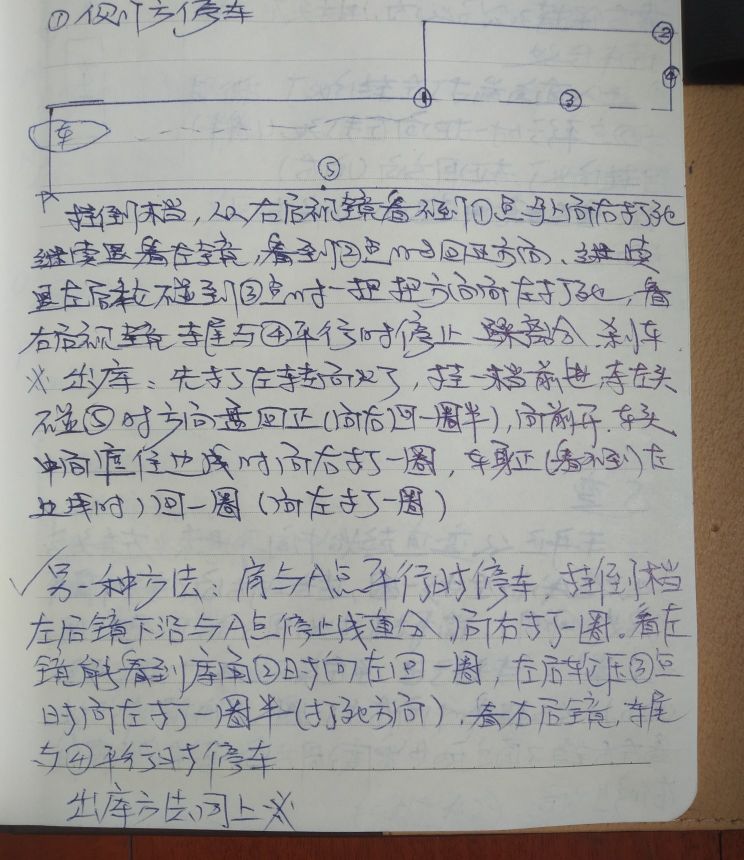 ①侧方停车
②
④
① ③
车
⑤
挂倒档，从右后视镜看不到①点马上向右打死
继续看左镜，看到②点时回正方向。继续
左后轮碰到③点时一把把方向向左打死，看
右后视镜车尾与④平行时停止 踩离合 刹车
※ 出库：先打左转向灯，挂一档前进，车左头
碰⑤时方向盘回正(向右回一圈半)，向前开，车头
中间压住边线时向右打一圈，车身正(看不到)左
边线时)回一圈（向左打一圈）
✓另一种方法：肩与A点平行时停车 挂倒档
左后镜下沿与A点停止线重合 向右打一圈。看左
镜能看到库角②时向左回一圈，左后轮压③点
时向左打一圈半(打死方向)，看右后镜，车尾
与④平行时停车
出库方法同上※